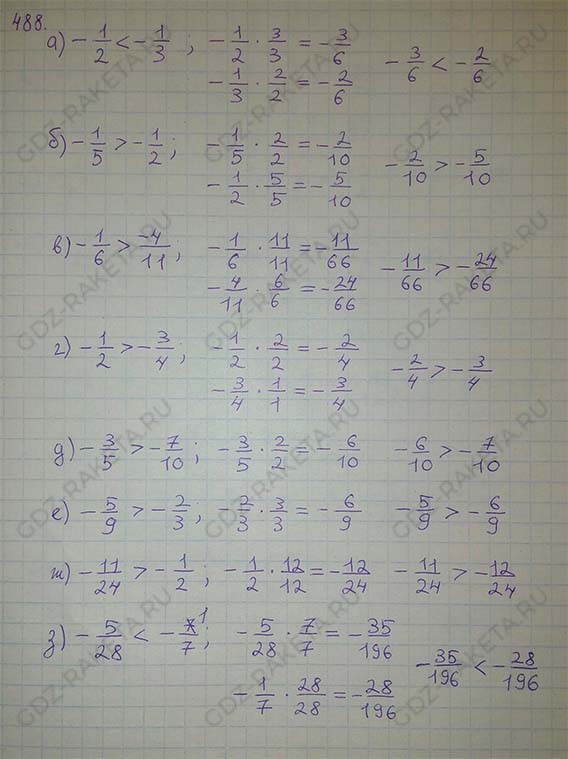 488.
а) -1/2 < -1/3 ; -1/2 · 3/3 = -3/6 -3/6 < -2/6
-1/3 · 2/2 = -2/6
б) -1/5 > -1/2 ; -1/5 · 2/2 = -2/10 -2/10 > -5/10
-1/2 · 5/5 = -5/10
в) -1/6 > -4/11 ; -1/6 · 11/11 = -11/66 -11/66 > -24/66
-4/11 · 6/6 = -24/66
г) -1/2 > -3/4 ; -1/2 · 2/2 = -2/4 -2/4 > -3/4
-3/4 · 1/1 = -3/4
д) -3/5 > -7/10 ; -3/5 · 2/2 = -6/10 -6/10 > -7/10
е) -5/9 > -2/3 ; -2/3 · 3/3 = -6/9 -5/9 > -6/9
ж) -11/24 > -1/2 ; -1/2 · 12/12 = -12/24 -11/24 > -12/24
з) -5/28 < -1/7 ; -5/28 · 7/7 = -35/196 -35/196 < -28/196
-1/7 · 28/28 = -28/196
GDZ-RAKETA.RU